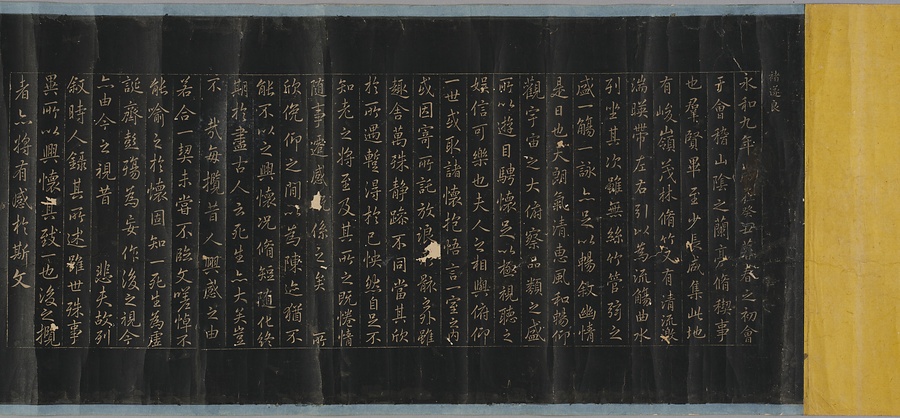 褚遂良
永和九年癸丑暮春之初會
于會稽山陰之蘭亭脩稧事
也羣賢畢至少咸集此地
有峻嶺茂林脩竹又有清流激
湍暎帶左右引以為流觴曲水
列坐其次雖無絲竹管弦之
盛一觴一詠亦足以暢敘幽情
是日也天朗氣清惠風和暢仰
觀宇宙之大俯察品類之盛
所以遊目騁懷足以極視聽之
娛信可樂也夫人之相與俯仰
一世或取諸懷抱悟言一室之內
或因寄所託放浪骸之外雖
趣舍萬殊静躁不同當其欣
於所遇蹔得於己怏然自足不
知老之將至及其所之既惓情
隨事遷感係之矣 所
欣俛仰之間以為陳迹猶不
能不以之興懷況脩短隨化終
期於盡古人云死生亦大矣豈
不 哉每攬昔人興感之由
若合一契未嘗不臨文嗟悼不
能喻之於懷固知一死生為虛
誕齊彭殤為妄作後之視今
亦由今之視昔 悲夫故列
敘時人錄其所述雖世殊事
異所以興懷其致一也後之攬
者亦將有感於斯文